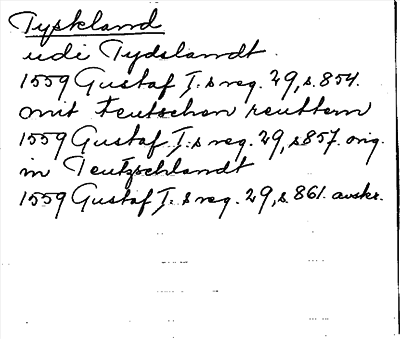 Tyskland
udi Tydslandt.
1559 Gustaf I:s reg. 29, s. 854.
mit teutschen reuttern
1559 Gustaf I:s reg. 29, s 857. orig.
in Teutzschlandt
1559 Gustaf I:s reg. 29, s. 861. avskr.